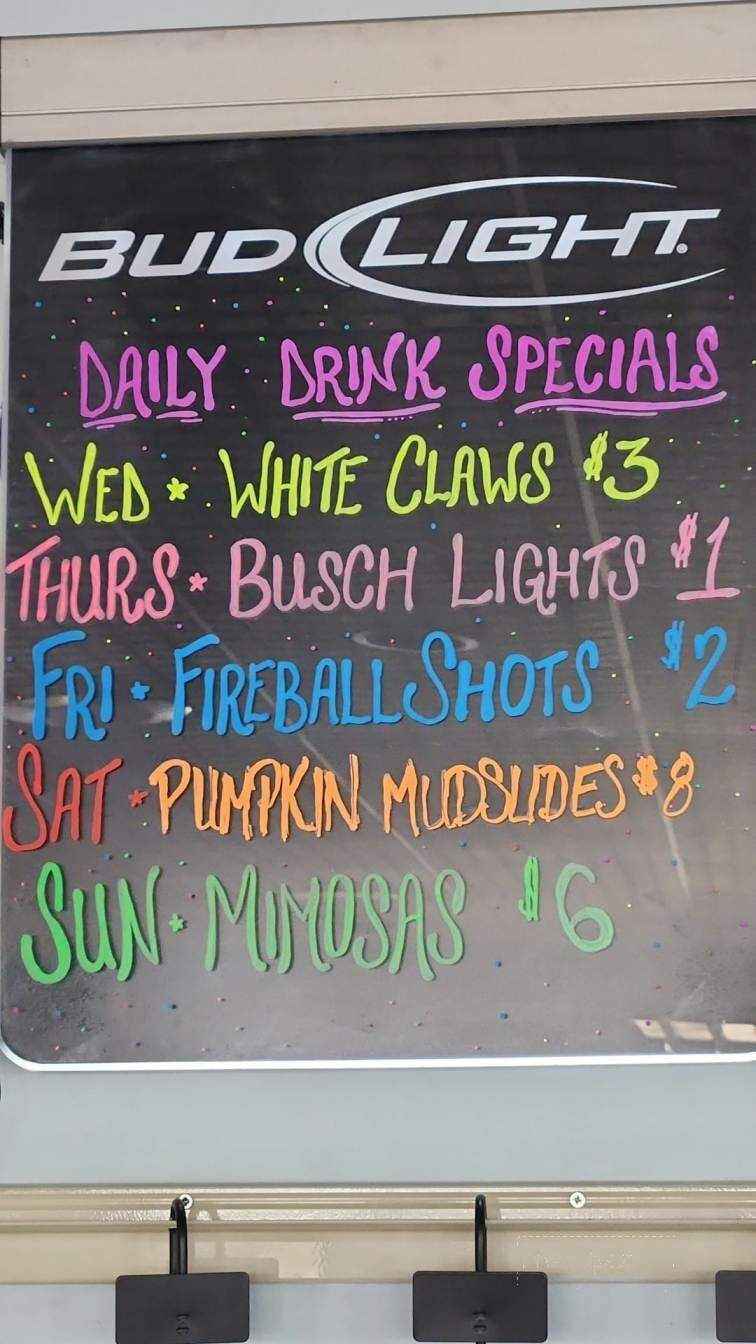 BUD LIGHT®
DAILY DRINK SPECIALS
WED * WHITE CLAWS $3
THURS * BUSCH LIGHTS $1
FRI * FIREBALL SHOTS $2
SAT * PUMPKIN MUDSLIDES * $8
SUN * MIMOSAS $6